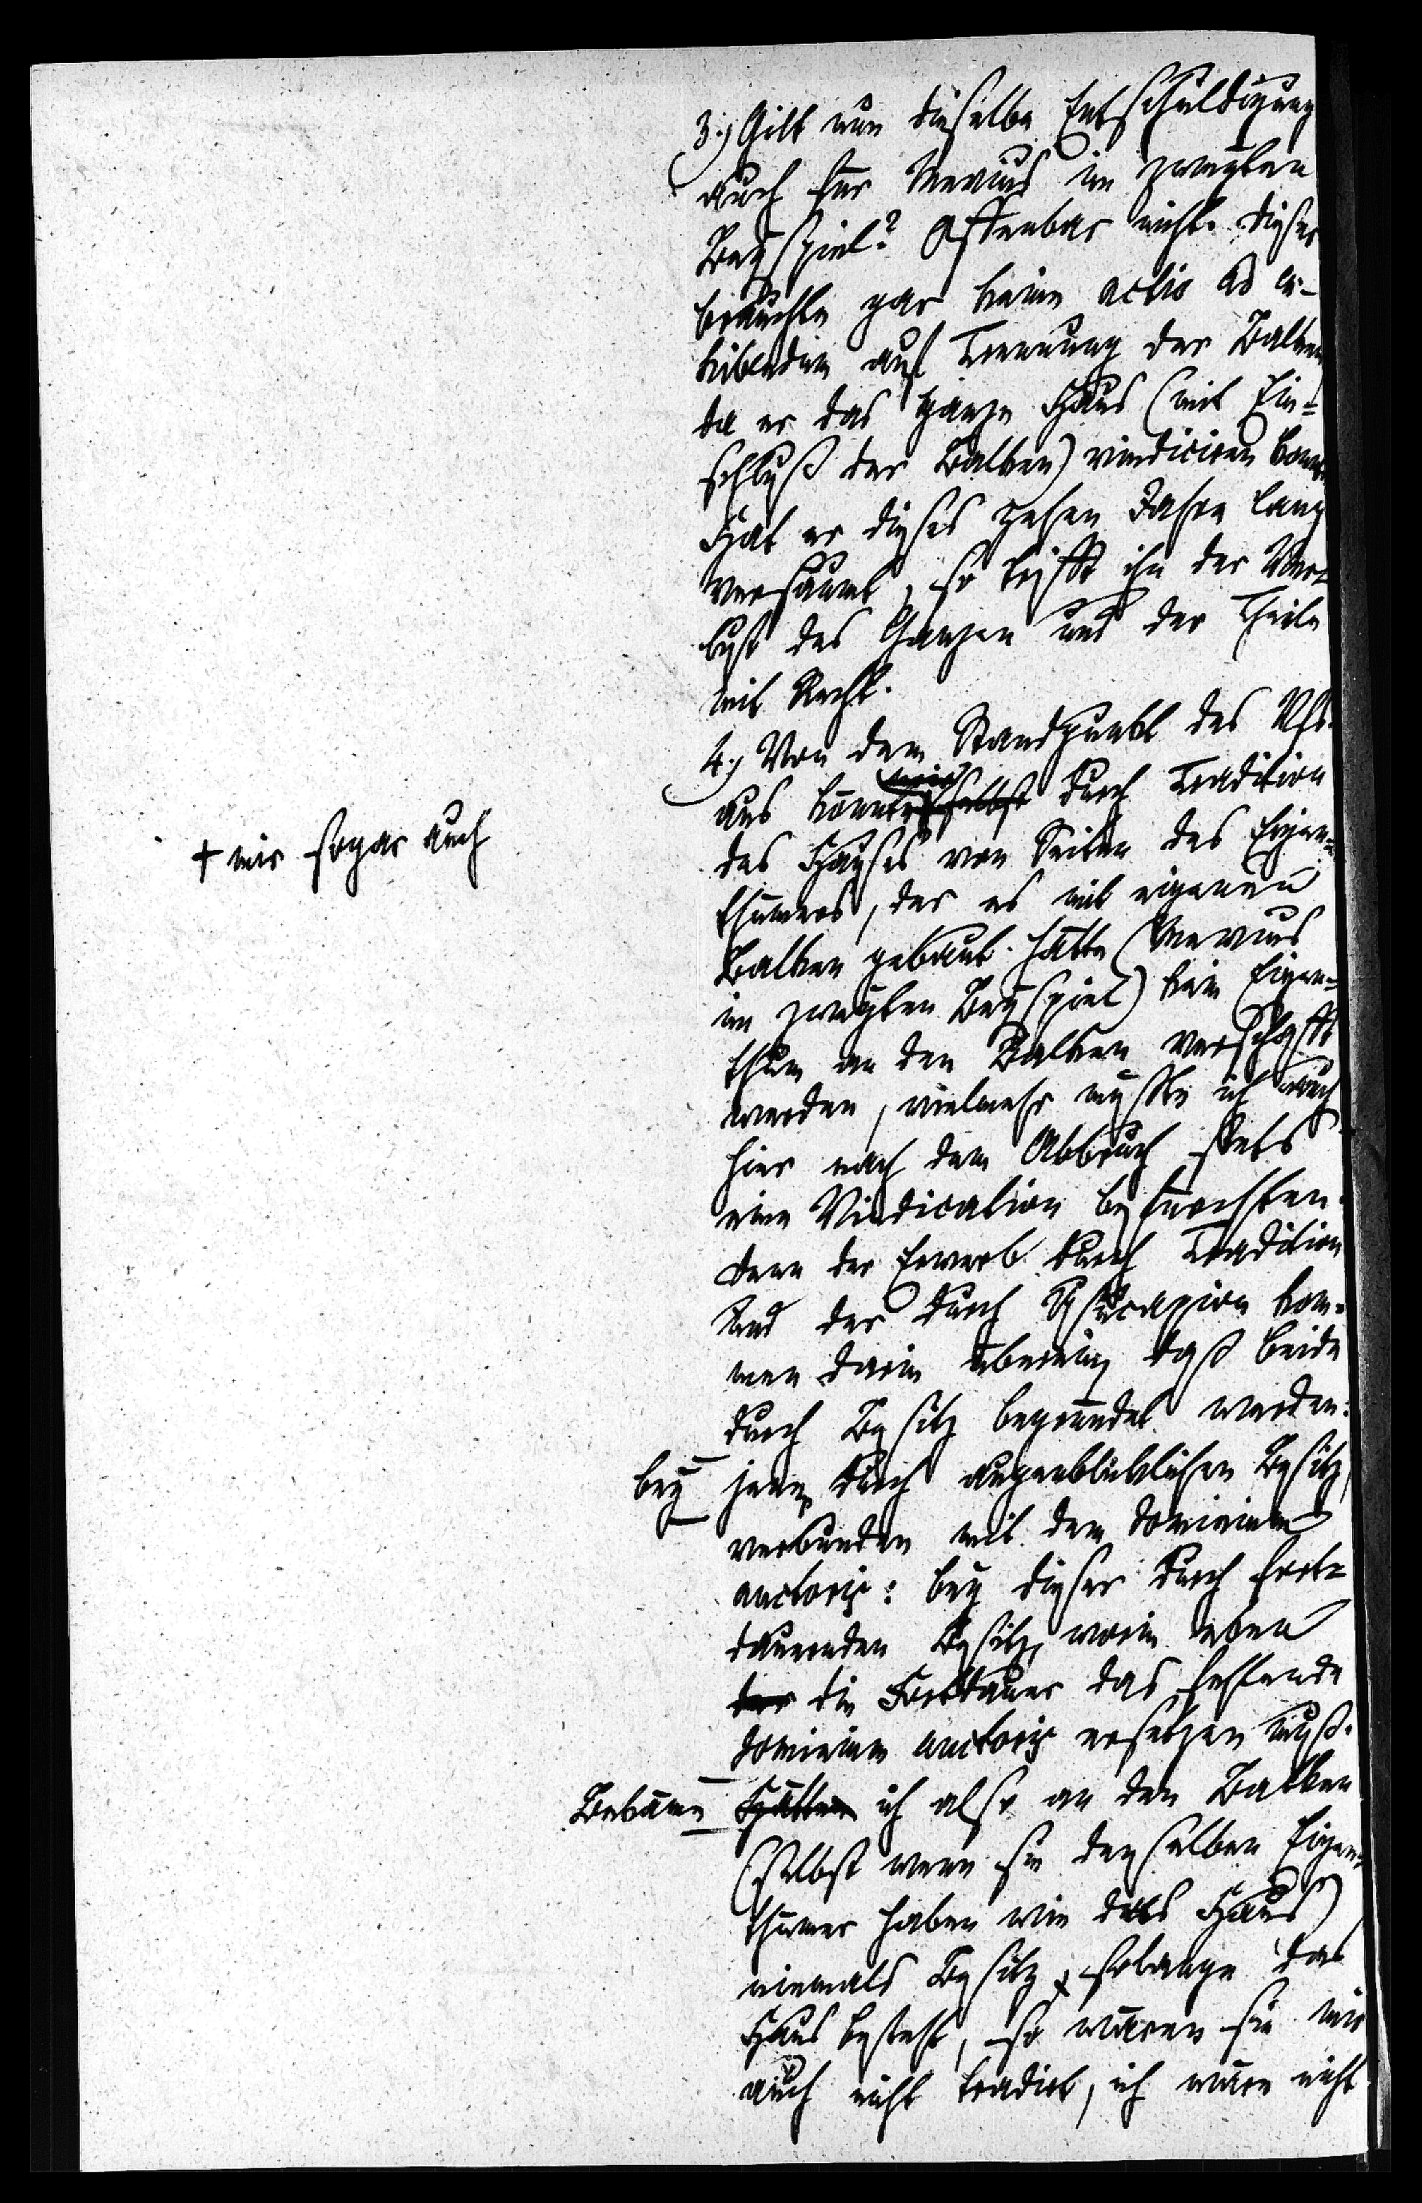 3.) Gilt nun dieselbe Entschuldigung
auch für Maevius im zweyten
Beyspiel? Offenbar nicht. dieser
brauchte gar keine actio ad ex-
hibendum auf Trennung der Balken
da er das ganze Haus (mit Ein=
schluß der Balken) vindiciren konnte
Hat er dieses zehen Jahre lang
versäumt, so trifft ihn der Ver=
lust des Ganzen und der Theile
mit Recht.
4.) Von dem Standpunkt des Vfs.
aus könnte mir selbst durch Tradition
+ mir sogar auch
des Hauses von Seiten des Eigen=
thümers, der es mit eigenen
Balken gebaut hätte (Maevius
im zweyten Beyspiel) kein Eigen=
thum an den Balken verschafft
werden, vielmehr müßte ich auch
hier nach dem Abbruch stets
eine Vindication befürchten.
denn der Erwerb durch Tradition
und der durch Usucapion kom=
men darin überein, daß beide
durch Besitz begründet werden:
bey jener durch augenblicklichen Besitz,
verbunden mit dem dominium
auctoris: bey dieser durch fort=
dauernden Besitz, worin eben
der die Fortdauer das fehlende
dominium auctoris ersetzen muß.
Bekäme Hätten ich also an den Balken
(selbst wenn sie denselben Eigen=
thümer haben wie das Haus)
niemals Besitz, solange das
Haus besteht, so wären sie mir
auch nicht tradirt, ich wäre nicht